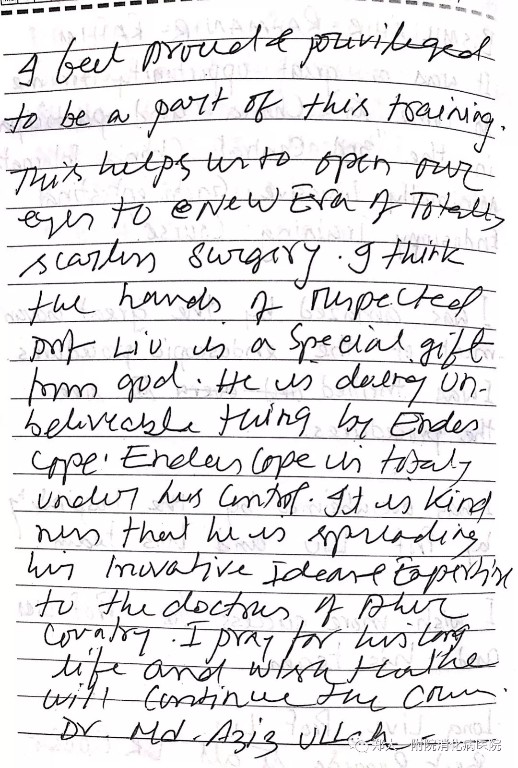 I feel proud & privileged
to be a part of this training.
This helps us to open our
eyes to a New Era of Totally
scarless surgery. I think
the hands of respected
prof Liu is a Special gift
from god. He is doing un-
beliveable thing by Endos
cope. Endoscope is totaly
under his Control. It is Kind
ness that he is spreading
his Inovative Idea and Expertise
to the doctors of other
Country. I pray for his long
life and wish that he
will continue the
Dr. Md. Aziz Ullah
郑大一附院消化病医院